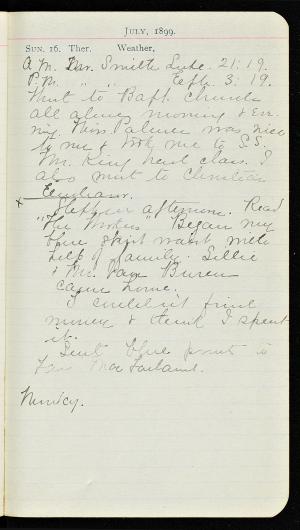 JULY, 1899.
SUN. 16. Ther. Weather,
A.M. Dr. Smith Luke. 21:19.
P.M. " " " Eph. 3:19.
Went to Bapt. Church
all alone morning & Eve
ning. Miss Palmer was nice
to me & took me to S.S.
Mr. King next class. I
also went to Christian
x Endeavor.
Slept in afternoon. Read
"the Workers" Began my
blue shirt waist with
help of family. Lillie
& Mr. Van Buren
came home.
I couldn't find
money & think I spent
it.
Sent blue print to